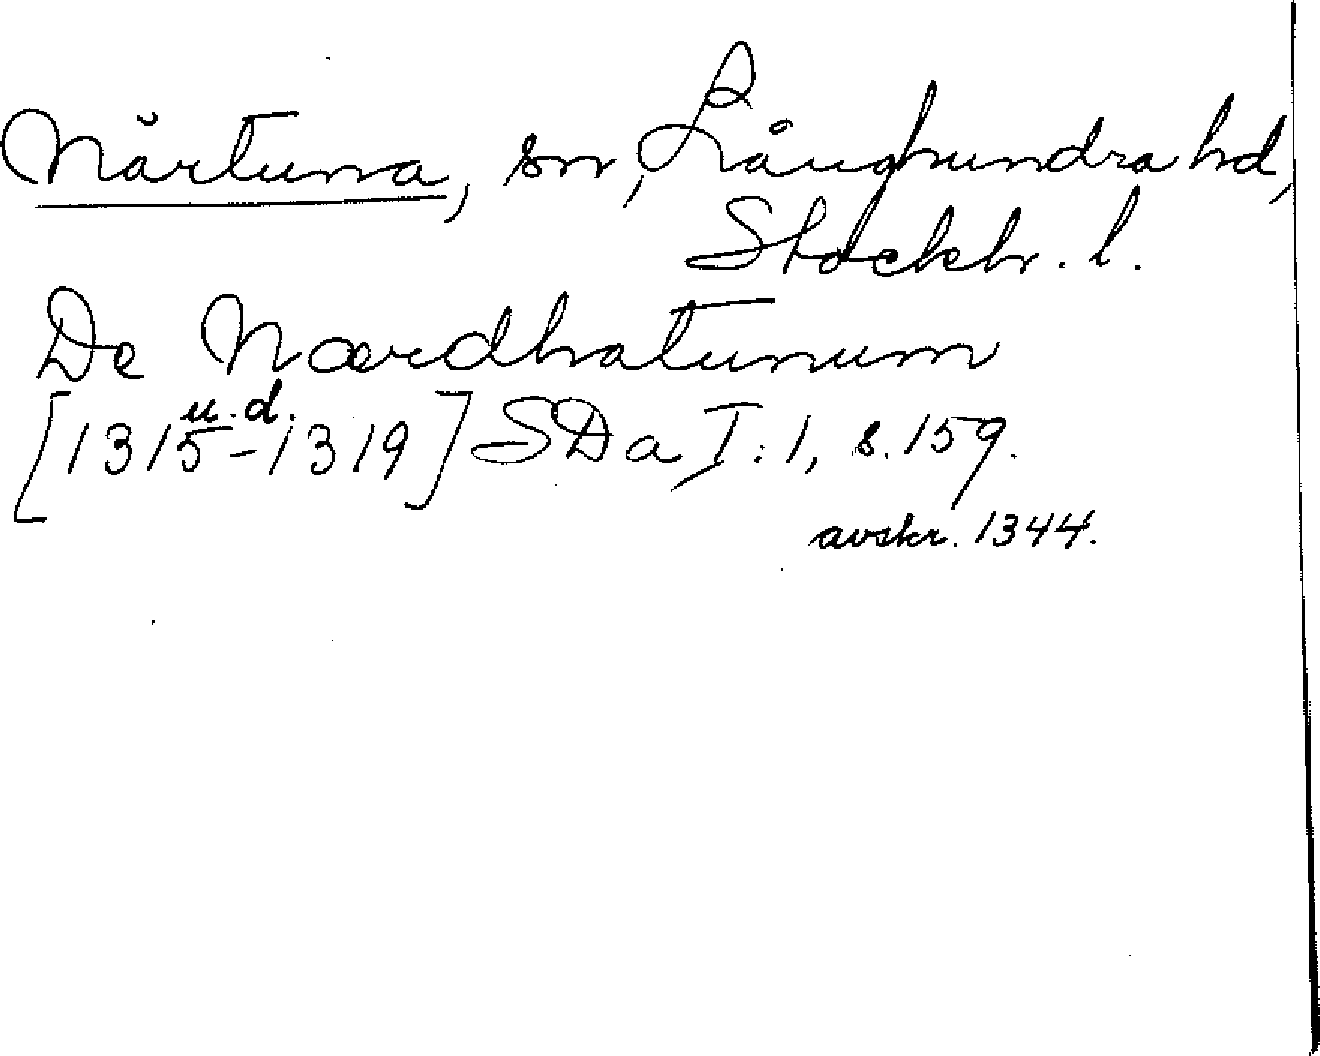 Närtuna, sn, Långhundra hd,
Stockh. l.
De Nærdhatunum
u. d.
[1315-1319] SDa I:1, s. 159.
avskr. 1344.